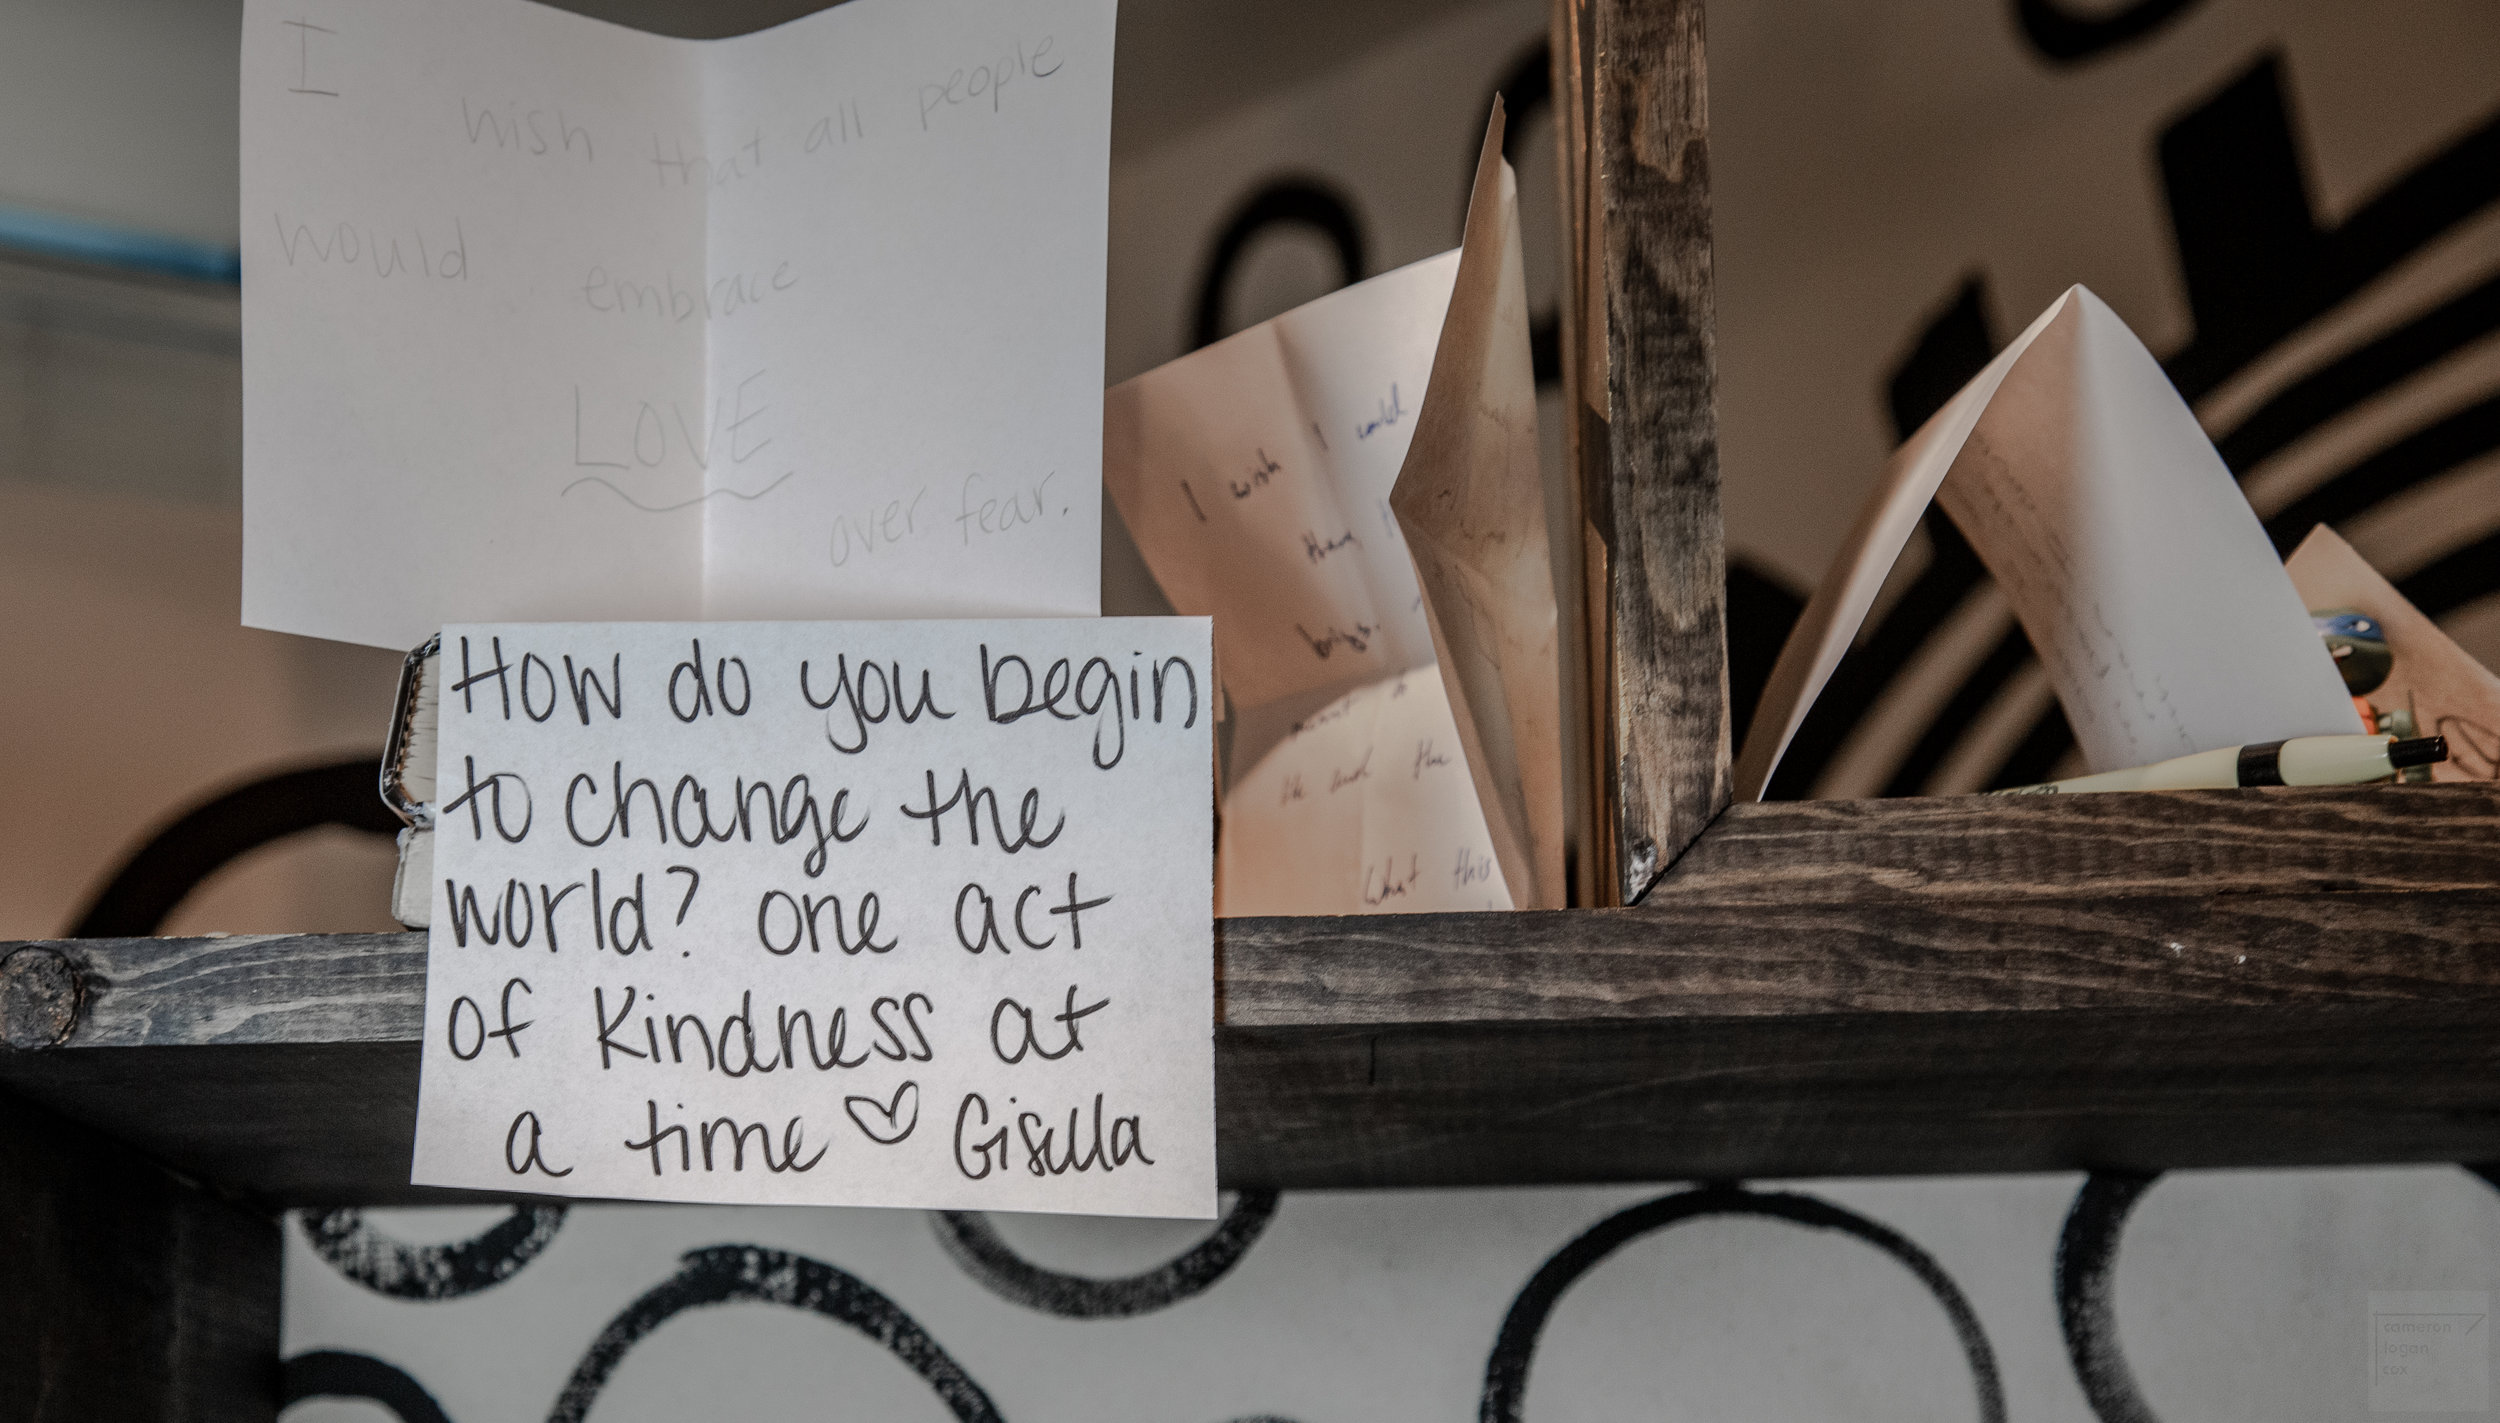 I
wish that all people
would embrace
LOVE
over fear.
How do you begin
to change the
world? one act
of kindness at
a time ♡ Gisella
I wish I could
have
brings.
meant to
the
What this
cameron
logan
cox